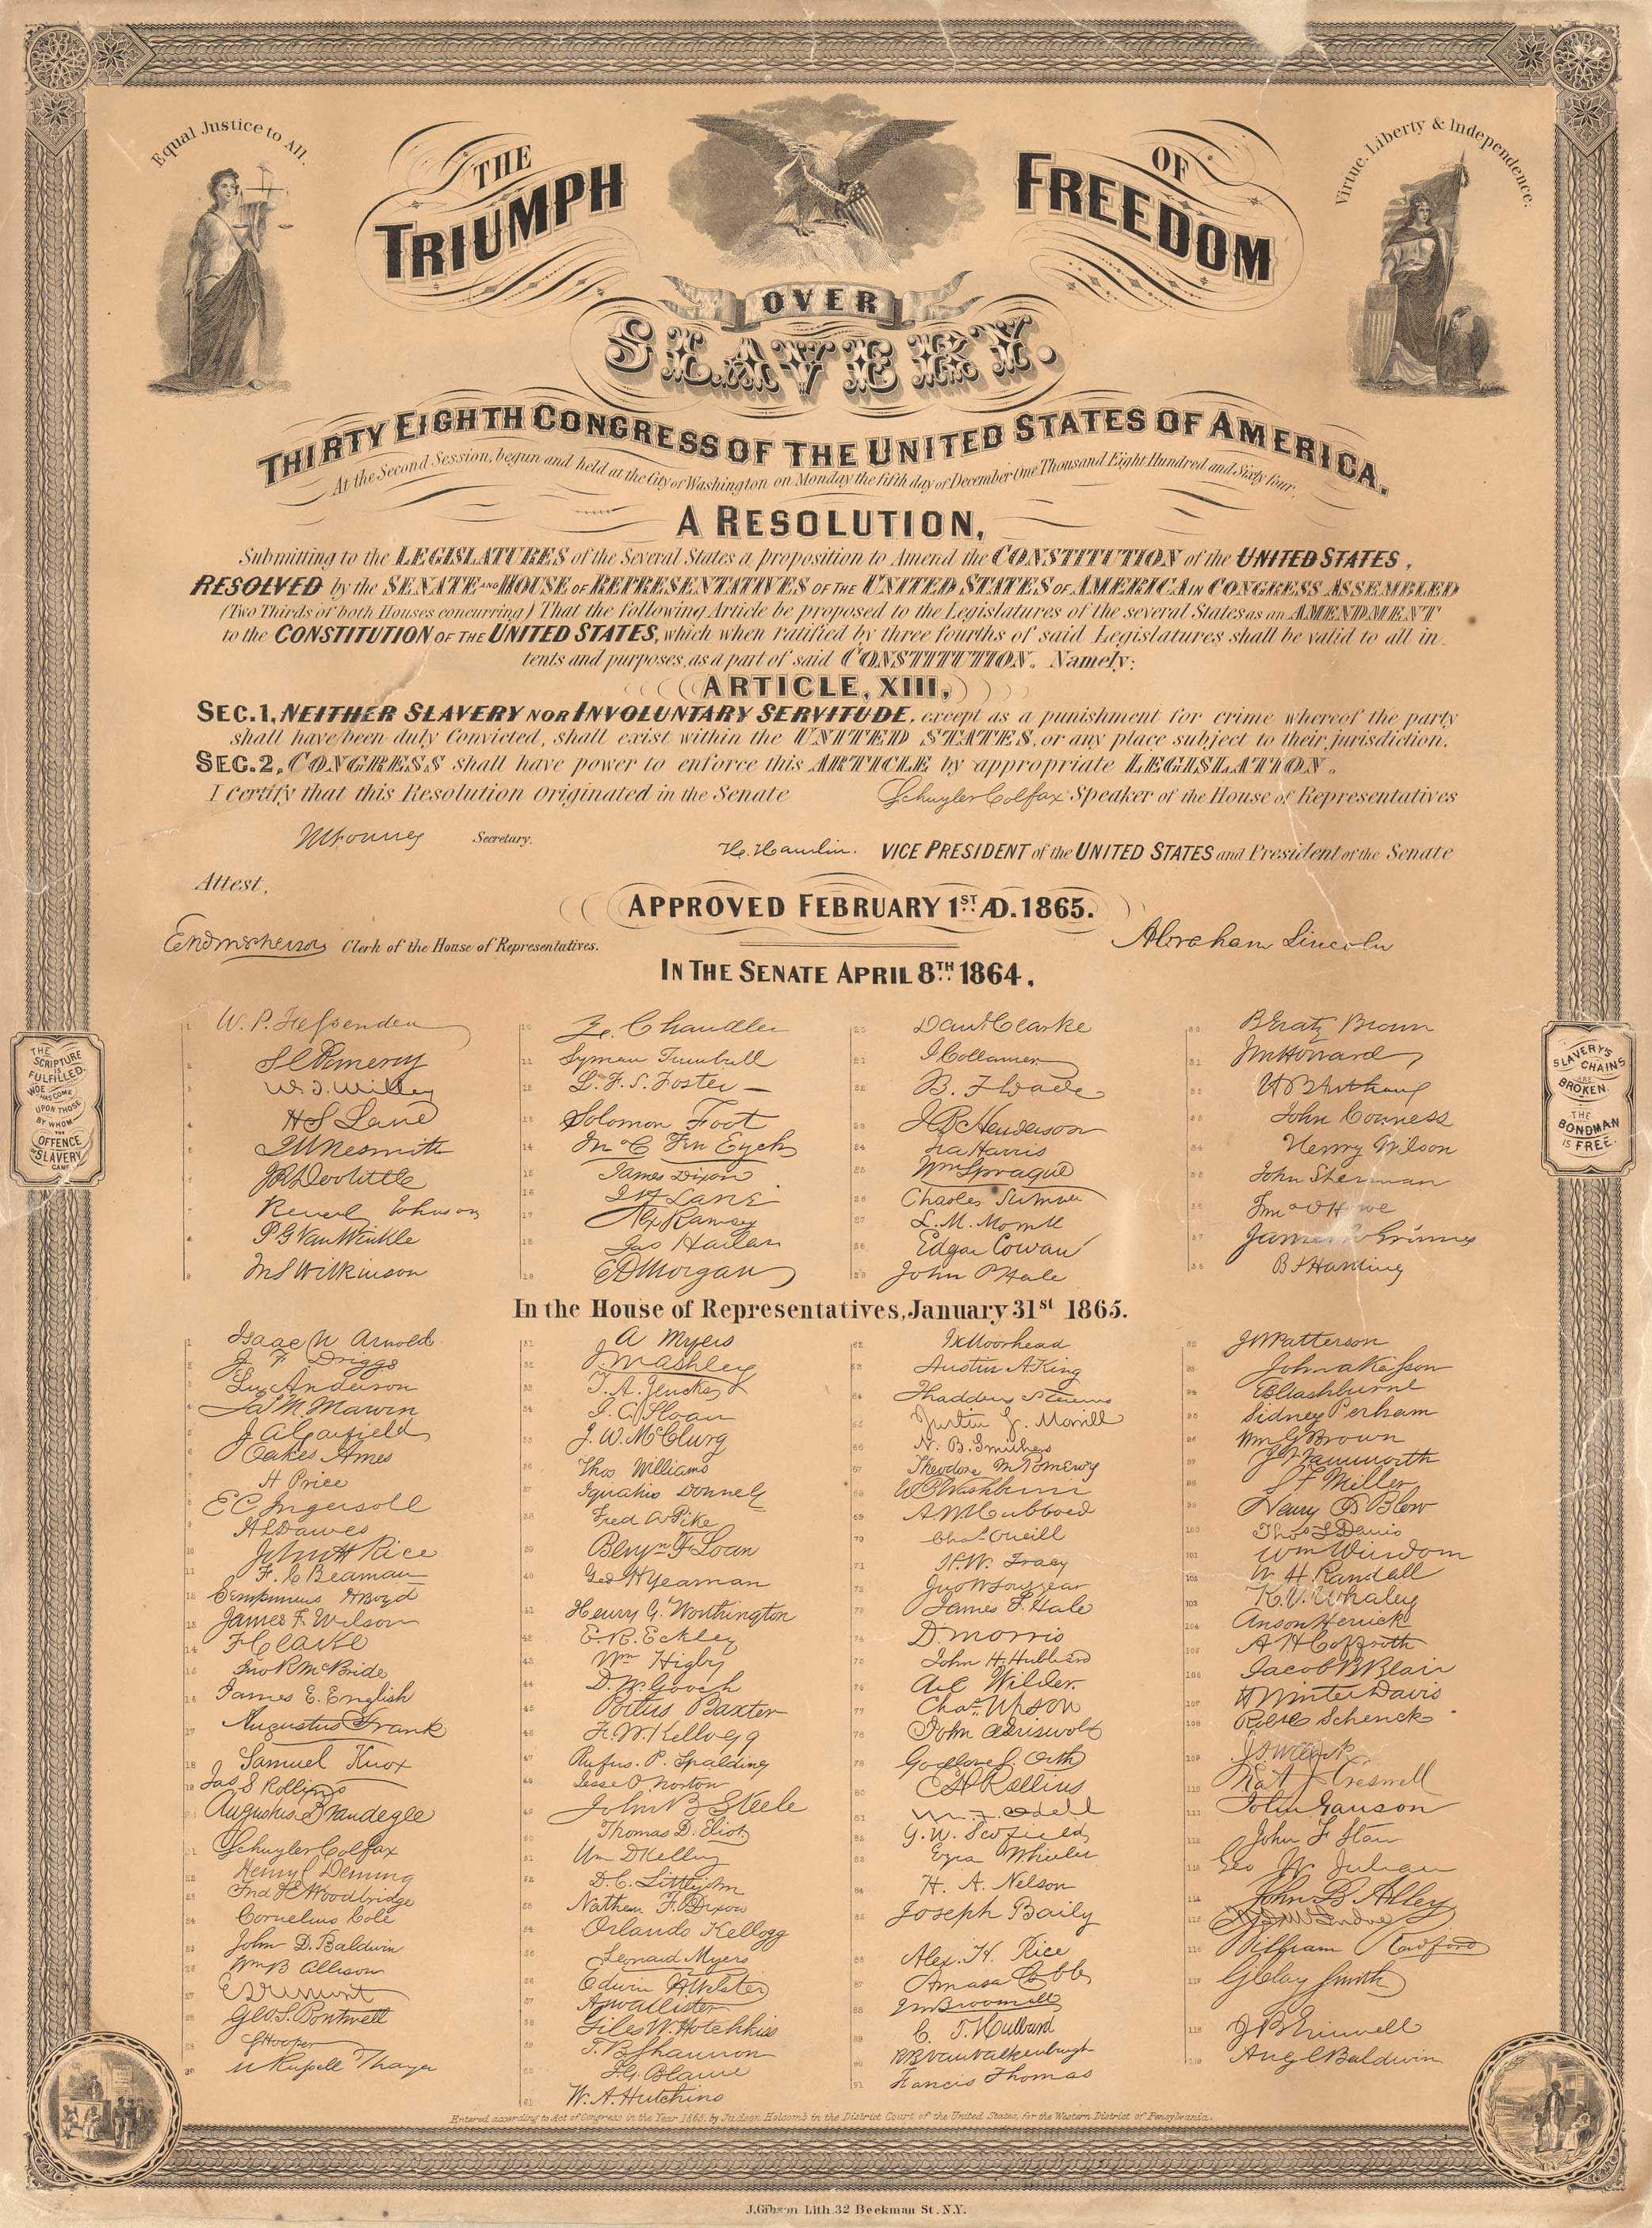 Equal Justice to All.
Virtue, Liberty & Independence.
THE
TRIUMPH
OF
FREEDOM
OVER
SLAVERY.
THIRTY EIGHTH CONGRESS OF THE UNITED STATES OF AMERICA.
At the Second Session, begun and held at the City of Washington on Monday the fifth day of December One Thousand Eight Hundred and Sixty four.
A RESOLUTION,
Submitting to the LEGISLATURES of the Several States a proposition to Amend the CONSTITUTION of the UNITED STATES,
RESOLVED by the SENATE AND HOUSE OF REPRESENTATIVES OF THE UNITED STATES OF AMERICA IN CONGRESS ASSEMBLED
(Two Thirds of both Houses concurring) That the following Article be proposed to the Legislatures of the several States as an AMENDMENT
to the CONSTITUTION OF THE UNITED STATES, which when ratified by three fourths of said Legislatures shall be valid to all in-
tents and purposes, as a part of said CONSTITUTION. Namely:
ARTICLE, XIII,
SEC. 1, NEITHER SLAVERY NOR INVOLUNTARY SERVITUDE, except as a punishment for crime whereof the party
shall have been duly Convicted, shall exist within the UNITED STATES, or any place subject to their jurisdiction.
SEC. 2, CONGRESS shall have power to enforce this ARTICLE by appropriate LEGISLATION.
I Certify that this Resolution Originated in the Senate
Schuyler Colfax Speaker of the House of Representatives
Secretary.
H. Hamlin. VICE PRESIDENT of the UNITED STATES and President of the Senate
Attest,
APPROVED FEBRUARY 1ST AD. 1865.
Clerk of the House of Representatives.
Abraham Lincoln
IN THE SENATE APRIL 8TH 1864.
THE
SCRIPTURE
IS
FULFILLED.
WOE
HAS COME
UPON THOSE
BY WHOM
THE
OFFENCE
OF SLAVERY
CAME
SLAVERY'S
CHAINS
ARE
BROKEN.
THE
BONDMAN
IS FREE.
1 W. P. Fessenden
2 S C Pomeroy
3 W. T. Willey
4 H S Lane
5 J W Nesmith
6 J R Doolittle
7 Reverdy Johnson
8 P G Van Winkle
9 M S Wilkinson
10 Z. Chandler
11 Lyman Trumbull
12 L. F. S. Foster
13 Solomon Foot
14 Jno C Ten Eyck
15 James Dixon
16 J H Lane
17 Alex Ramsey
18 Jas Harlan
19 E D Morgan
20 Danl Clarke
21 J Collamer
22 B. F Wade
23 J B Henderson
24 Ira Harris
25 Wm Sprague
26 Charles Sumner
27 L. M. Morrill
28 Edgar Cowan
29 John P Hale
30 B Gratz Brown
31 J M Howard
32 H B Anthony
33 John Conness
34 Henry Wilson
35 John Sherman
36 T M O Howe
37 James W Grimes
38 B F Harding
In the House of Representatives, January 31st 1865.
1 Isaac N Arnold
2 J. F. Driggs
3 Lu Anderson
4 Jas M. Marvin
5 J A Garfield
6 Oakes Ames
7 H Price
8 E C Ingersoll
9 H L Dawes
10 John H Rice
11 F. C Beaman
12 Sempronius H Boyd
13 James F. Wilson
14 F Clarke
15 Jno R McBride
16 James E. English
17 Augustus Frank
18 Samuel Knox
19 Jas S Rollins
20 Augustus Brandegee
21 Schuyler Colfax
22 Henry C Deming
23 Fred E Woodbridge
24 Cornelius Cole
25 John D. Baldwin
26 Wm B Allison
27 E Dumont
28 Geo. S. Boutwell
29 S Hooper
30 M Russell Thayer
31 A Myers
32 J. M Ashley
33 T. A. Jenckes
34 I. C Sloan
35 J. W. McClurg
36 Thos Williams
37 Ignatius Donnelly
38 Fred A Pike
39 Benjn F Loan
40 Geo H Yeaman
41 Henry G. Worthington
42 E. R. Eckley
43 Wm Higby
44 D. W. Gooch
45 Portus Baxter
46 F. W. Kellogg
47 Rufus. P. Spalding
48 Jesse O Norton
49 John B Steele
50 Thomas D. Eliot
51 Wm D Kelley
52 D. C. Littlejohn
53 Nathan F. Dixon
54 Orlando Kellogg
55 Leonard Myers
56 Edwin H Webster
57 A McAllister
58 Giles W. Hotchkiss
59 T. B Shannon
60 J. G. Blaine
61 W. A. Hutchins
62 J K Moorhead
63 Austin A. King
64 Thaddeus Stevens
65 Justin S. Morrill
66 N. B. Smithers
67 Theodore M Pomeroy
68 W B Washburn
69 A W Hubbard
70 Chas. O'Neill
71 H. W. Tracy
72 Jno W Longyear
73 James T. Hale
74 D Morris
75 John H. Hubbard
76 A C Wilder
77 Chas. Upson
78 John A Griswold
79 Godlove S Orth
80 E H Rollins
81 M. F. Odell
82 G. W. Scofield
83 Ezra Wheeler
84 H. A. Nelson
85 Joseph Baily
86 Alex. H. Rice
87 Amasa Cobb
88 J M Broomall
89 C. T. Hulburd
90 R B Van Valkenburgh
91 Francis Thomas
92 J W Patterson
93 John A Kasson
94 E B Washburne
95 Sidney Perham
96 Wm G Brown
97 J F Farnsworth
98 S F Miller
99 Henry T Blow
100 Thos T Davis
101 Wm Windom
102 W. H. Randall
103 K. V. Whaley
104 Anson Herrick
105 A H Coffroth
106 Jacob B Blair
107 H Winter Davis
108 Robt C Schenck
109
110 J Creswell
111 John Ganson
112 John F Starr
113 Geo W. Julian
114 John B Alley
115
116 William Radford
117 G Clay Smith
118 J B Grinnell
119 Aug C Baldwin
Entered according to Act of Congress in the Year 1865, by Judson Holcomb in the District Court of the United States, for the Western District of Pensylvania.
J. Gibson Lith 32 Beekman St. N.Y.